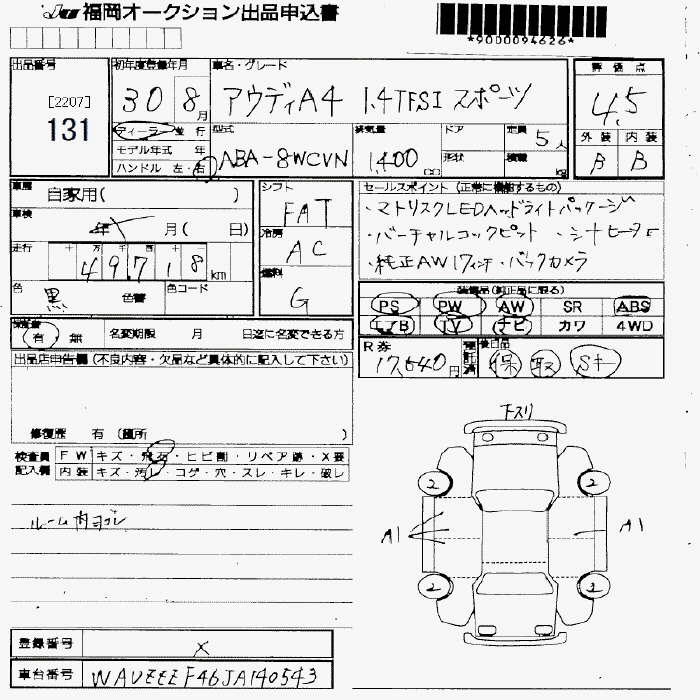 福岡オークション出品申込書
*9000094626*
出品番号 初年度登録年月 車名・グレード 評価点
[2207]
131
30 8月 アウディA4 1.4TFSI スポーツ 4.5
ディーラー 並行 型式 排気量 ドア 定員 5人 外装 内装
モデル年式 年 ABA-8WCVN 1,400cc 形状 積載 kg B B
ハンドル 左・右
車歴 自家用( ) シフト FAT セールスポイント (正常に機能するもの)
車検 年 月( 日) 冷房 AC ・マトリスクLEDヘッドライトパッケージ
・バーチャルコックピット ・シートヒーター
走行 十 万 千 百 十
49718km 燃料 G ・純正AW17インチ・バックカメラ
色 黒 色替 色コード
装備品(純正品に限る)
PS PW AW SR ABS
エアB TV ナビ カワ 4WD
保証書 有 無 名変期限 月 日迄に名変できる方
R券 17,640円 預託済 後日品 保 取 Sキー
出品店申告欄(不良内容・欠品など具体的に記入して下さい)
修復歴 有(箇所 )
検査員 FW キズ・飛石・ヒビ割・リペア跡・X要
記入欄 内装 キズ・汚レ・コゲ・穴・スレ・キレ・破レ
下スリ
2 2
ルーム内ヨゴレ
A1 A1
2 2
登録番号 X
車台番号 WAUZZZF46JA140543